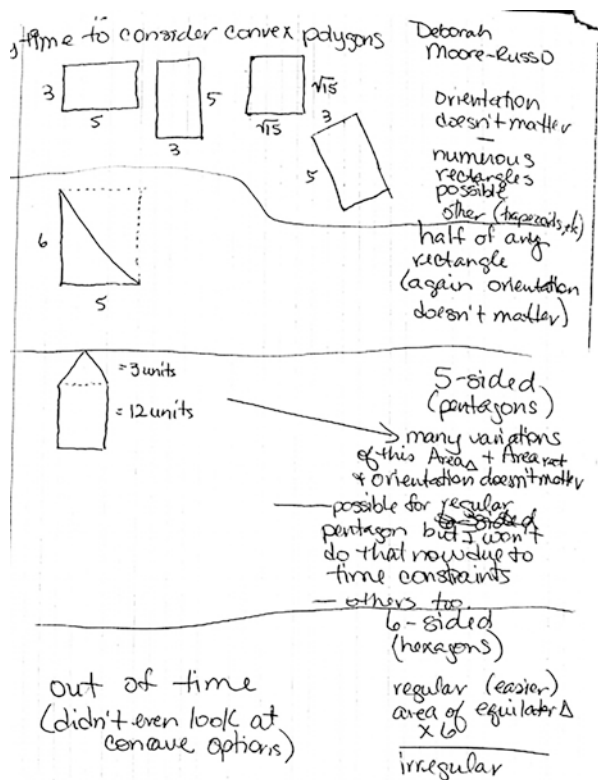 time to consider convex polygons
Deborah
Moore-Russo
3
5
5
3
√15
√15
3
5
orientation
doesn't matter
—
numerous
rectangles
possible
other (trapezoids, etc)
6
5
half of any
rectangle
(again orientation
doesn't matter)
= 3 units
= 12 units
5-sided
(pentagons)
many variations
of this Area△ + Area rect
+ orientation doesn't matter
— possible for regular
pentagon but I won't
do that now due to
time constraints
— others too.
6-sided
(hexagons)
out of time
(didn't even look at
concave options)
regular (easier)
area of equilater △
x 6
irregular